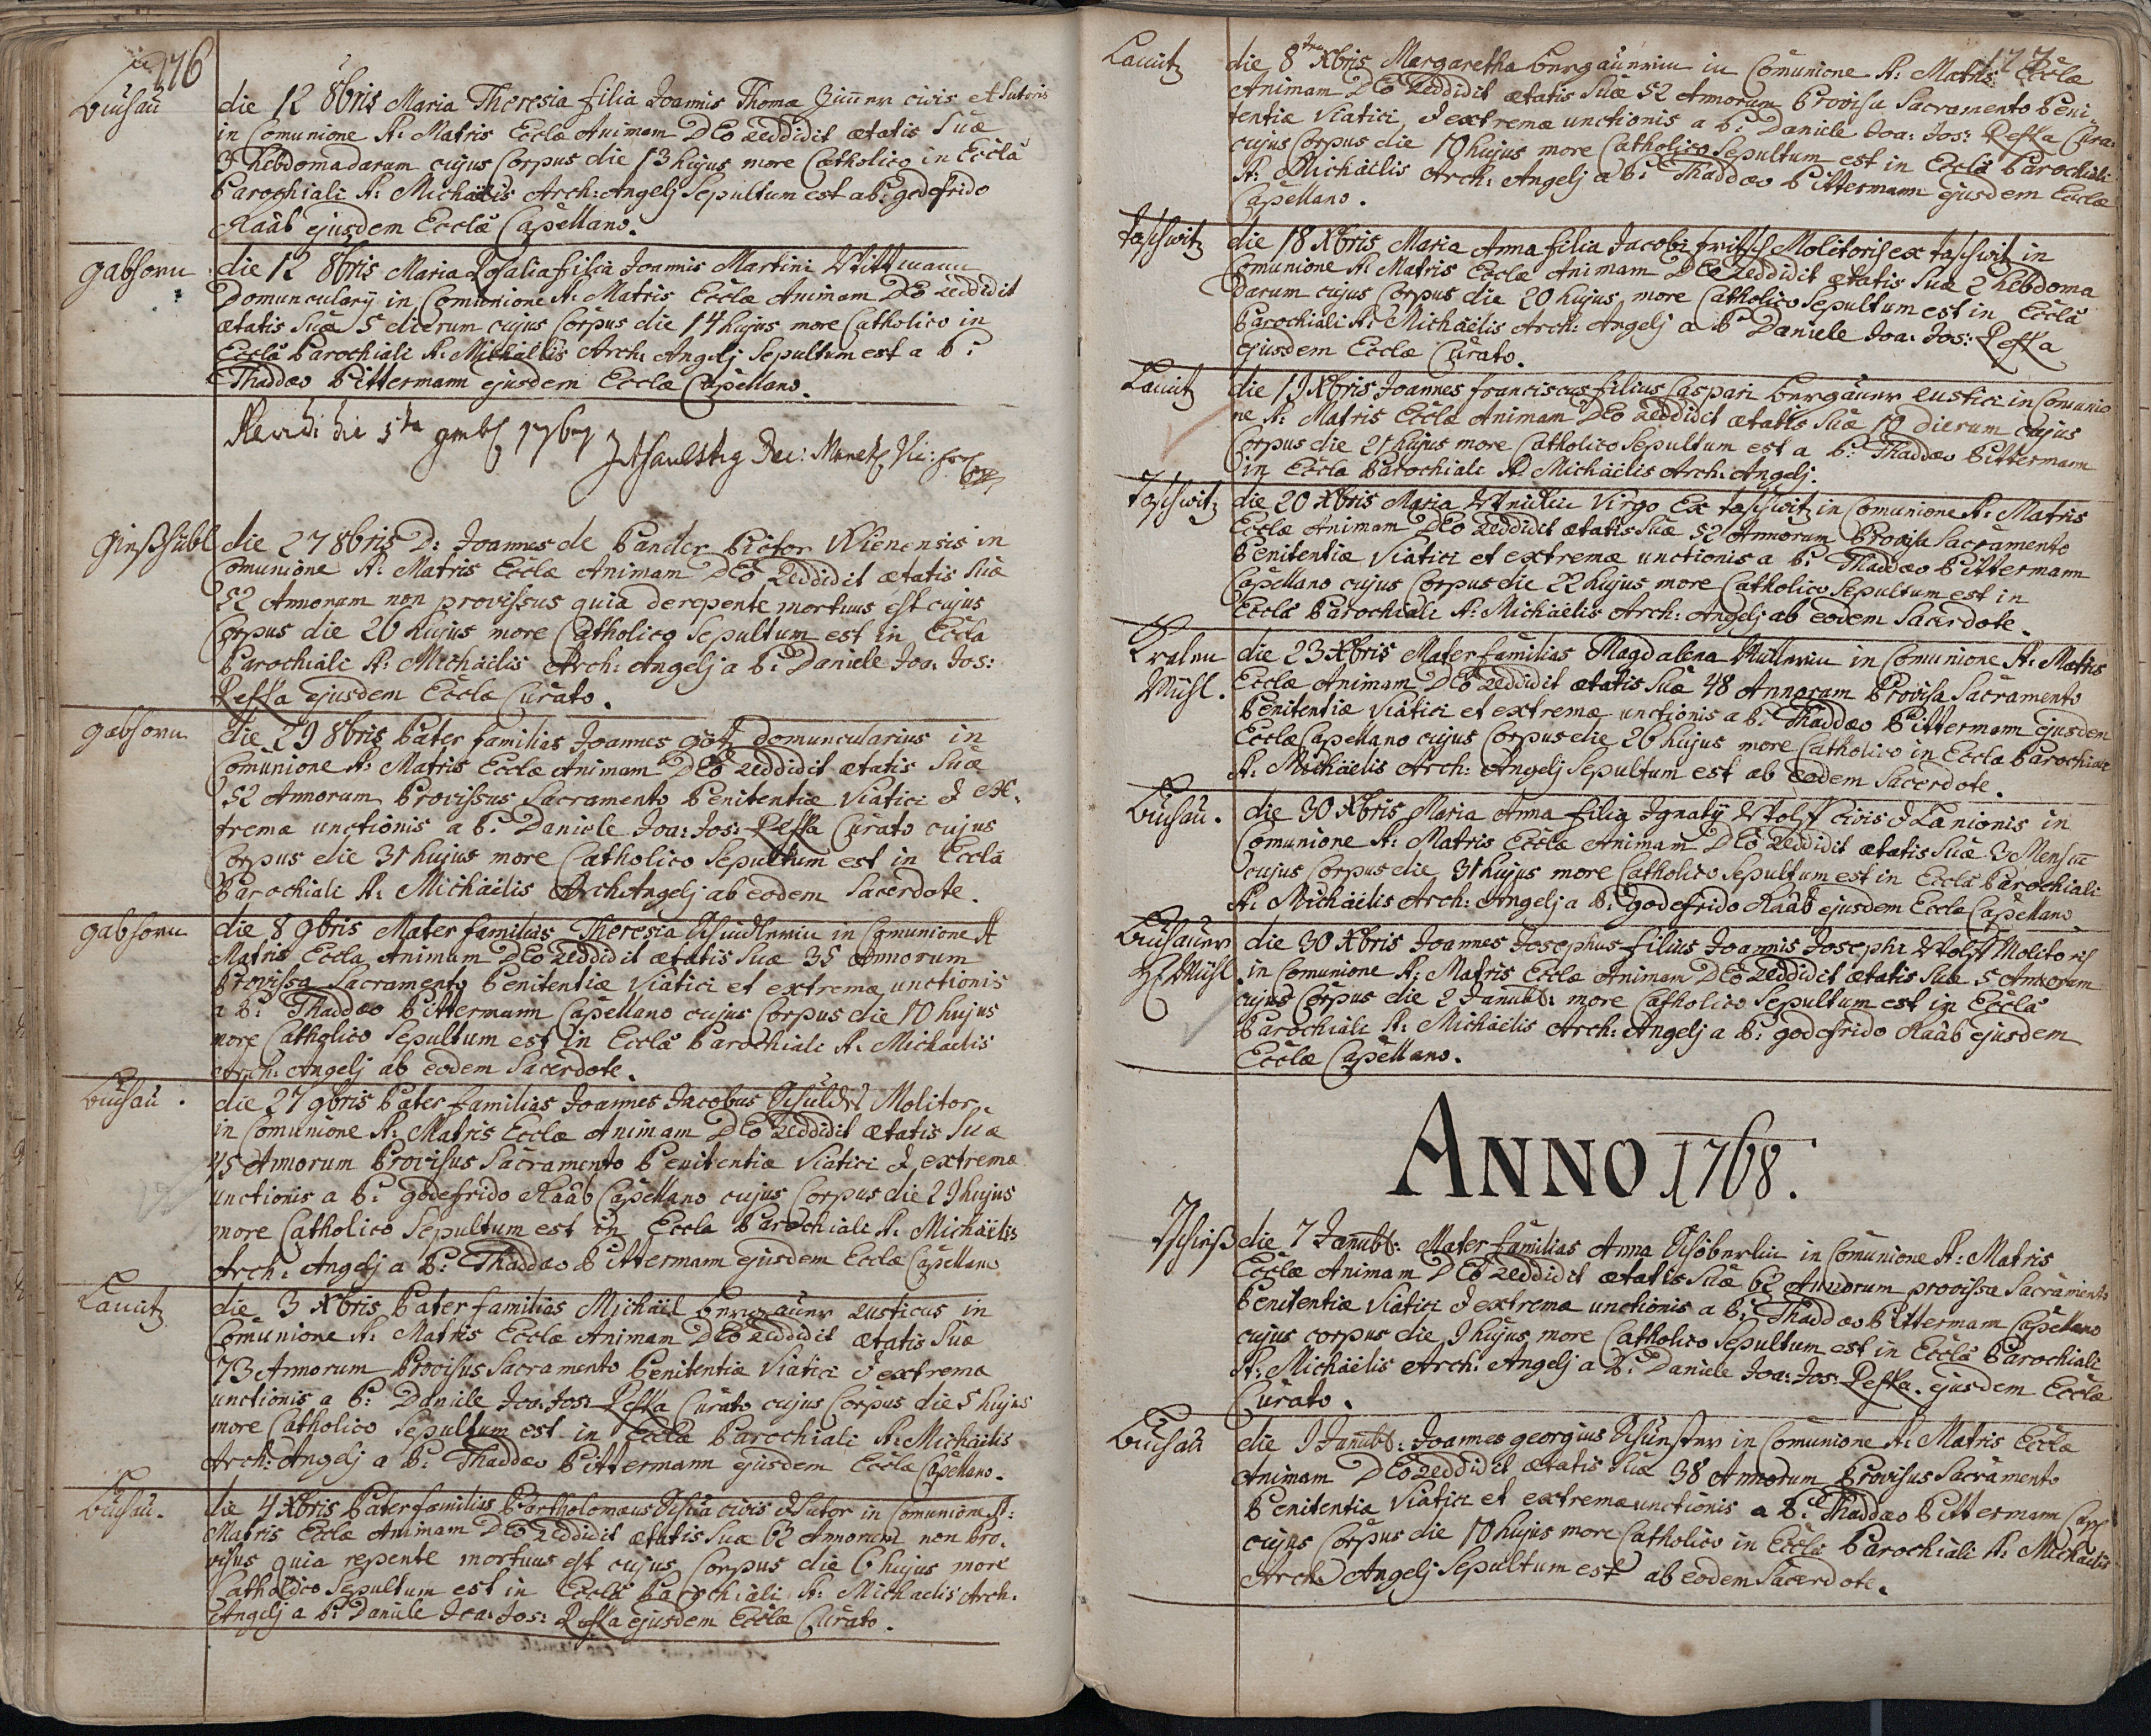 176
Buchau
die 12 8bris Maria Theresia filia Joannis Thoma Zimer civis et Sutoris
in Comunione S: Matris Eccla Animam DEo reddidit ætatis Suæ
3 hebdomadarum cujus Corpus die 13 hujus more Catholico in Eccla
Parochiali S: Michaëlis Arch: Angelj Sepultum est a P: godefrido
Raab ejusdem Ecclæ Capellano.
gabhorn
die 12 8bris Maria Rosalia filia Joannis Martini Wittmann
Domuncularij in Comunione S: Matris Ecclæ Animam DEo reddidit
ætatis Suæ 5 dierum cujus Corpus die 14 hujus more Catholico in
Eccla Parochiali S: Michaëlis Arch: Angelj Sepultum est a P:
Thaddæo Pittermann ejusdem Ecclæ Capellano.
die 5ta 1767
gieshübl
die 27 8bris D: Joannes de Pander Pictor Wienensis in
Comunione S: Matris Ecclæ Animam DEo Reddidit ætatis Suæ
22 Annorum non provissus quia derepente mortuus est cujus
Corpus die 20 hujus more Catholico Sepultum est in Eccla
Parochiali S: Michaëlis Arch: Angelj a P: Daniele Joa: Jos:
Peska ejusdem Ecclæ Curato.
gabhorn
die 29 8bris Pater familias Joannes götz domuncularius in
Comunione S: Matris Ecclæ Animam DEo reddidit ætatis Suæ
52 Annorum Provissus Sacramento Penitentiæ Viatici & ex,
tremæ unctionis a P: Daniele Joa: Jos: Peska Curato cujus
Corpus die 31 hujus more Catholico Sepultum est in Eccla
Parochiali S: Michaëlis ArchAngelj ab eodem Sacerdote.
gabhorn
die 8 9bris Mater familias Theresia in Comunione S
Matris Eccla Animam DEo reddidit ætatis Suæ 35 Annorum
Provissa Sacramento Penitentiæ Viatici et extremæ unctionis
a P: Thaddæo Pittermann Capellano cujus Corpus die 10 hujus
more Catholico Sepultum est in Eccla Parochiali S: Michaelis
Arch: Angelj ab eodem Sacerdote.
Buchau.
die 27 9bris Pater familias Joannes Jacobus Molitor
in Comunione S: Matris Ecclæ Animam DEo reddidit ætatis Suæ
45 Annorum Provisus Sacramento Penitentiæ Viatici & extremæ
unctionis a P: godefrido Raab Capellano cujus Corpus die 29 hujus
more Catholico Sepultum est in Eccla Parochiali S: Michaëlis
Arch: Angelj a P: Thaddæo Pittermann ejusdem Ecclæ Capellano
Lautitz
die 3 Xbris Pater familias Michäel bergauer rusticus in
Comunione S: Matris Ecclæ Animam DEo reddidit ætatis Suæ
73 Annorum Provisus Sacramento Penitentiæ Viatici & extremæ
unctionis a P: Daniele Joa: Jos: Peska Curato cujus Corpus die 5 hujus
more Catholico Sepultum est in Eccla Parochiali S: Michaëlis
Arch: Angelj a P: Thaddæo Pittermann ejusdem Ecclæ Capellano.
Buchau.
die 4 Xbris Pater familias Bartholomæus civis & Sutor in Comunione S:
Matris Ecclæ Animam DEo reddidit ætatis Suæ 62 Annorum non Pro,
visus quia repente mortuus est cujus Corpus die 6 hujus more
Catholico Sepultum est in Eccla Parochiali S: Michaelis Arch:
Angelj a P: Daniele Joa: Jos: Peska ejusdem Ecclæ Curato.
177
Lautitz
die 8 Xbris Margaretha bergauerin in Comunione S: Matris Ecclæ
Animam DEo Reddidit ætatis Suæ 52 Annorum Provisa Sacramento Peni,
tentiæ Viatici & extremæ unctionis a P: Daniele Joa: Jos: Peska Cura:
cujus Corpus die 10 hujus more Catholico Sepultum est in Eccla Parochiali
S: Michaëlis Arch: Angelj a P: Thaddæo Pittermann ejusdem Ecclæ
Capellano.
taschwitz
die 18 Xbris Maria Anna filia Jacobi fritsch Molitoris ex taschwitz in
Comunione S: Matris Ecclæ Animam DEo reddidit ætatis Suæ 2 hebdoma
darum cujus Corpus die 20 hujus more Catholico Sepultum est in Eccla
Parochiali S: Michaëlis Arch: Angelj a P: Daniele Joa: Jos: Peska
ejusdem Ecclæ Curato.
Lautitz
die 19 Xbris Joannes franciscus filius Caspari bergauer rustici in Comunio
ne S: Matris Ecclæ Animam DEo reddidit ætatis Suæ 10 dierum cujus
Corpus die 21 hujus more Catholico Sepultum est a P: Thaddæo Pittermann
in Eccla Parochiali S: Michaëlis Arch: Angelj.
taschwitz
die 20 Xbris Maria Virgo Ex taschwitz in Comunione S: Matris
Ecclæ Animam DEo Reddidit ætatis Suæ 52 Annorum Provisa Sacramento
Penitentiæ Viatici et extremæ unctionis a P: Thaddæo Pittermann
Capellano cujus Corpus die 22 hujus more Catholico Sepultum est in
Eccla Parochiali S: Michaelis Arch: Angelj ab eodem Sacerdote.
Mühl.
die 23 Xbris Mater familias Magdalena Müllerin in Comunione S: Matris
Ecclæ Animam DEo reddidit ætatis Suæ 48 Annorum Provisa Sacramento
Penitentiæ Viatici et extremæ unctionis a P: Thaddæo Pittermann ejusdem
Ecclæ Capellano cujus Corpus die 26 hujus more Catholico in Eccla Parochiali
S: Michaëlis Arch: Angelj Sepultum est ab eodem Sacerdote.
Buchau.
die 30 Xbris Maria Anna filia Ignatij Wolff Civis & Lanionis in
Comunione S: Matris Ecclæ Animam DEo Reddidit ætatis Suæ 3 Mensiu
cujus Corpus die 31 hujus more Catholico Sepultum est in Eccla Parochiali
S: Michaëlis Arch: Angelj a P: godefrido Raab ejusdem Ecclæ Capellano
Buchauer
Mühl.
die 30 Xbris Joannes Josephus filius Joannis Josephi Wolff Molitoris
in Comunione S: Matris Ecclæ Animam DEo Reddidit ætatis Suæ 5 Annorum
cujus Corpus die 2 Januarij: more Catholico Sepultum est in Eccla
Parochiali S: Michaëlis Arch: Angelj a P: godefrido Raab ejusdem
Ecclæ Capellano.
ANNO 1768.
die 7 Mater familias Anna in Comunione S: Matris
Ecclæ Animam DEo reddidit ætatis Suæ 62 Annorum provissa Sacramento
Penitentiæ Viatici & extremæ unctionis a P: Thaddæo Pittermann Capellano
cujus corpus die 9 hujus more Catholico Sepultum est in Eccla Parochiali
S: Michaëlis Arch: Angelj a P: Daniele Joa: Jos: Peska. ejusdem Ecclæ
Curato.
Buchau
die 9 Joannes georgius in Comunione S: Matris Ecclæ
Animam DEo reddidit ætatis Suæ 38 Annorum Provisus Sacramento
Penitentiæ Viatici et extremæ unctionis a P: Thaddæo Pittermann Cap
cujus Corpus die 10 hujus more Catholico in Eccla Parochiali S: Michaelis
Arch: Angelj Sepultum est ab eodem Sacerdote.